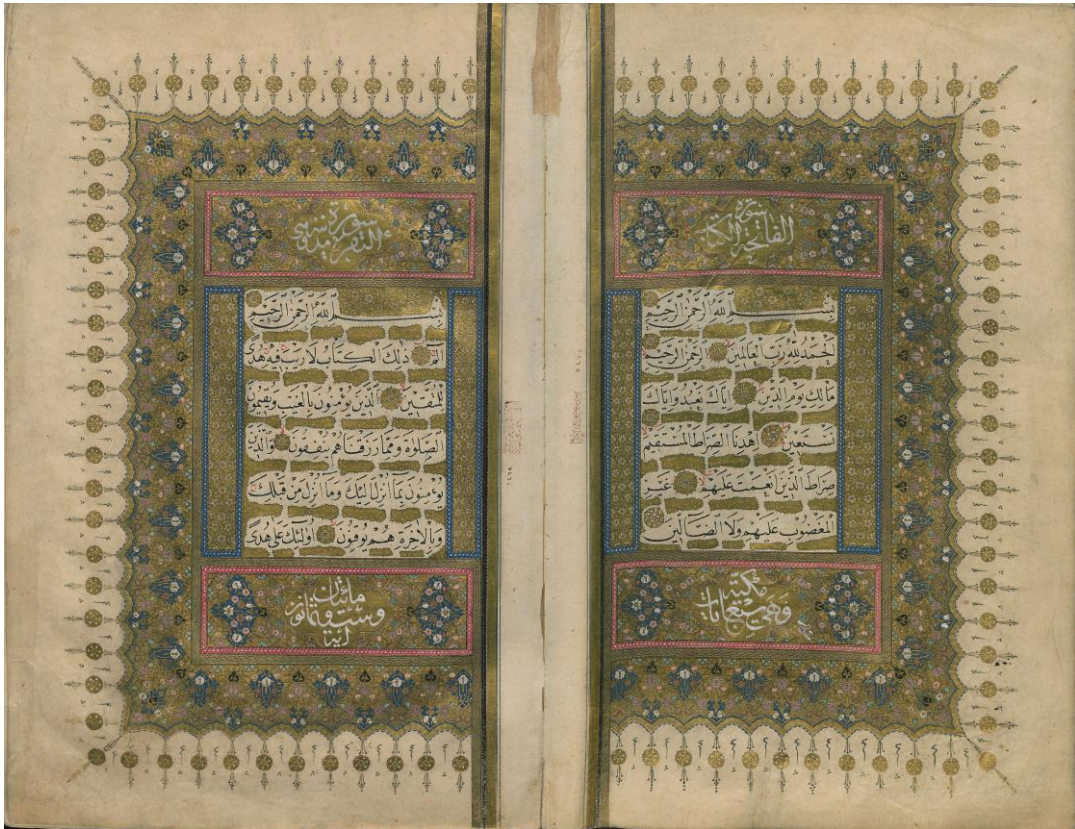 سورة
الفاتحة الكتاب
بِسْمِ اللَّهِ الرَّحْمٰنِ الرَّحِيمِ
اَلْحَمْدُ لِلَّهِ رَبِّ الْعَالَمِينَ الرَّحْمٰنِ الرَّحِيمِ
مَالِكِ يَوْمِ الدِّينِ اِيَّاكَ نَعْبُدُ وَاِيَّاكَ
نَسْتَعِينُ اِهْدِنَا الصِّرَاطَ الْمُسْتَقِيمَ
صِرَاطَ الَّذِينَ اَنْعَمْتَ عَلَيْهِمْ غَيْرِ
الْمَغْضُوبِ عَلَيْهِمْ وَلَا الضَّالِّينَ
مكية
وهي سبع ايات
سورة
البقرة مدنية وهي
بِسْمِ اللَّهِ الرَّحْمٰنِ الرَّحِيمِ
الٓمٓ ذٰلِكَ الْكِتَابُ لَا رَيْبَ فِيهِ هُدًى
لِلْمُتَّقِينَ اَلَّذِينَ يُؤْمِنُونَ بِالْغَيْبِ وَيُقِيمُونَ
الصَّلٰوةَ وَمِمَّا رَزَقْنَاهُمْ يُنْفِقُونَ وَالَّذِينَ
يُؤْمِنُونَ بِمَا اُنْزِلَ اِلَيْكَ وَمَا اُنْزِلَ مِنْ قَبْلِكَ
وَبِالْاٰخِرَةِ هُمْ يُوقِنُونَ اُولٰئِكَ عَلٰى هُدًى
مائتان
وست وثمانون
آية